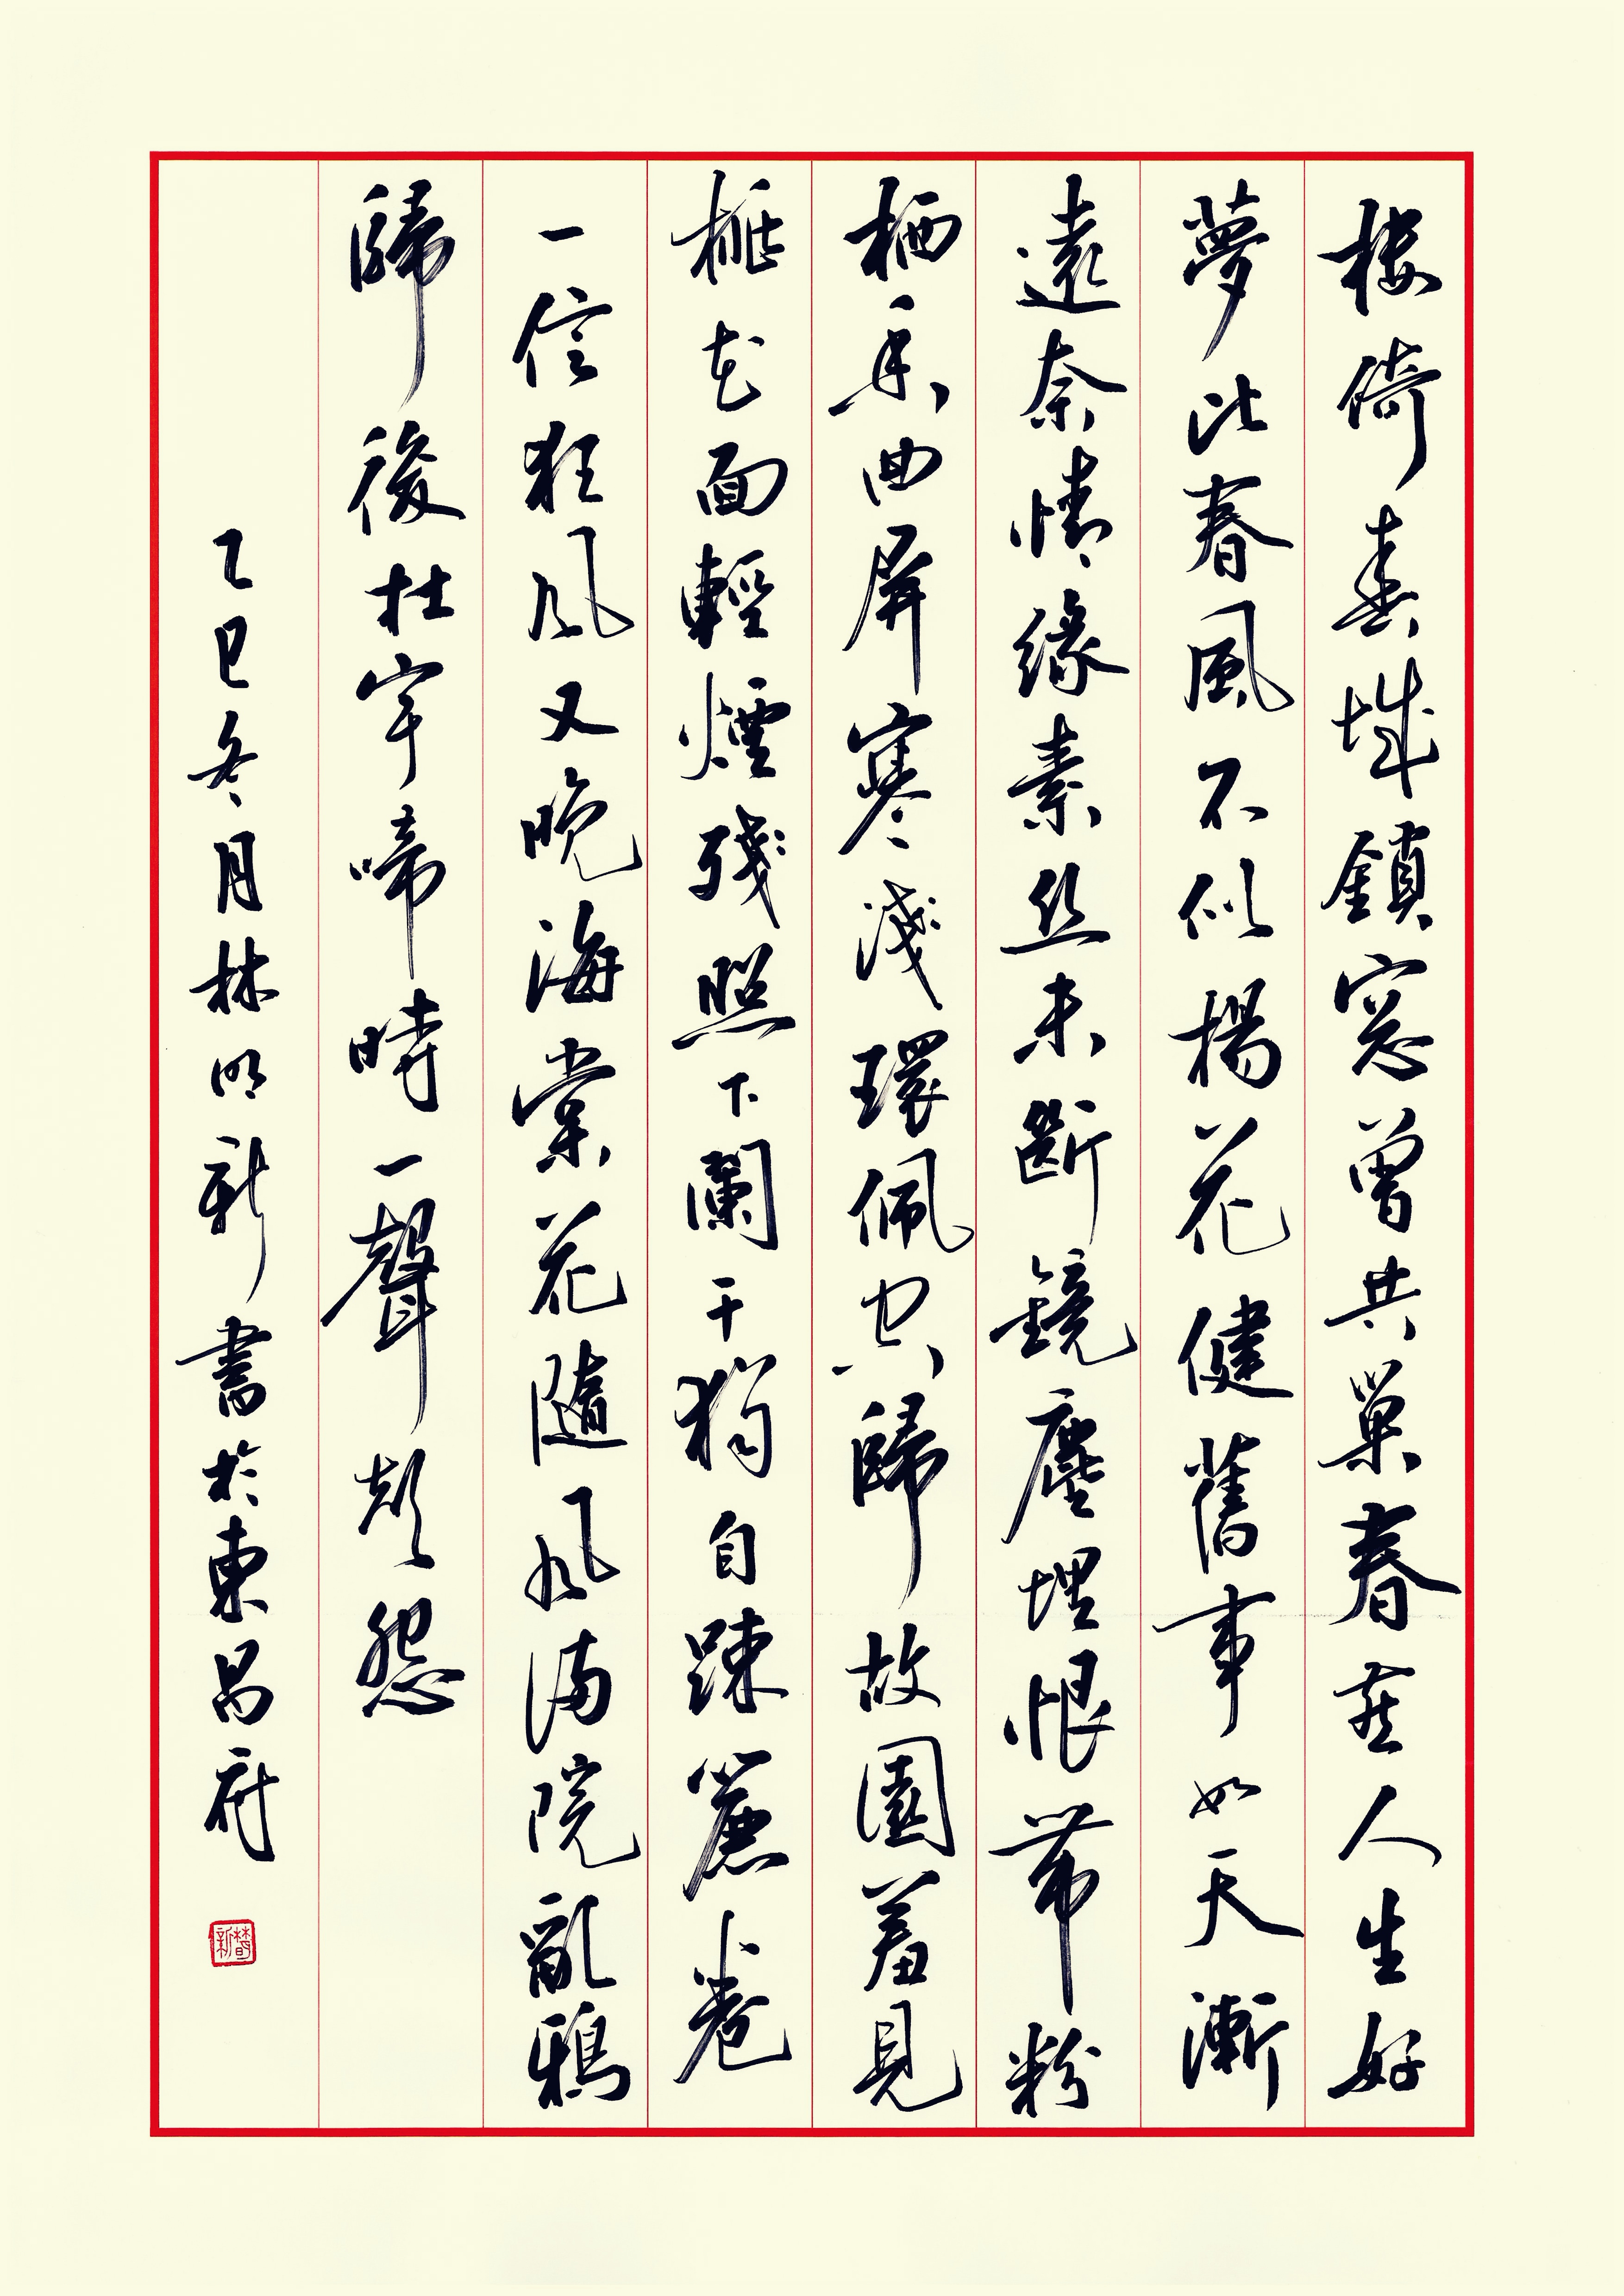 樓倚春城鎖窓曾共巢春燕人生好
夢比春風不似楊花健舊事如天漸
遠奈情緣素絲未斷鏡塵埋恨帶粉
栖香曲屏寒淺環佩空歸故園羞見
桃花面輕煙殘照下闌干獨自疎簾卷
一信狂风又晚海棠花隨风滿院亂鴉
歸後杜宇啼時一聲聲怨
乙巳冬月林明新書於東昌府